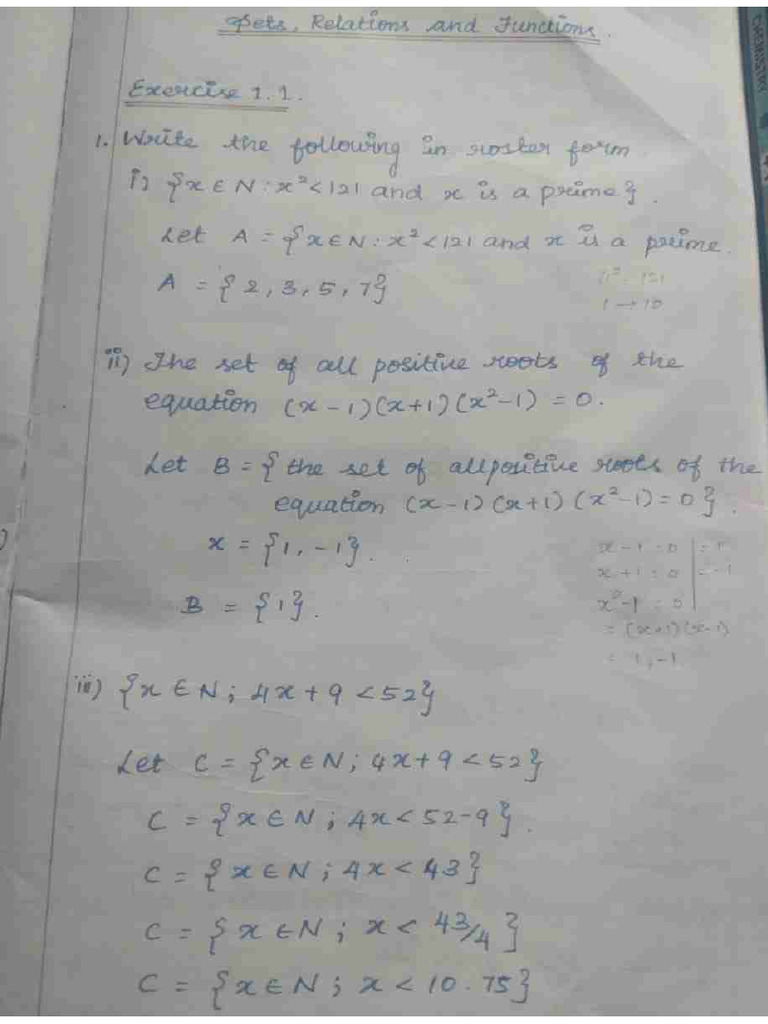 Sets, Relations and Functions.
CHEMISTRY
Exercise 1.1.
1. Write the following in roster form
i) {x ∈ N : x² < 121 and x is a prime}.
Let A = {x ∈ N : x² < 121 and x is a prime.
A = {2, 3, 5, 7}
11² = 121
1 → 10
ii) The set of all positive roots of the
equation (x - 1)(x + 1)(x² - 1) = 0.
Let B = { the set of all positive roots of the
equation (x - 1)(x + 1)(x² - 1) = 0}.
x = {1, -1}.
B = {1}.
x - 1 = 0 | = 1
x + 1 = 0 | = -1
x² - 1 = 0
= (x+1)(x-1)
= 1, -1
iii) {x ∈ N ; 4x + 9 < 52}
Let C = {x ∈ N ; 4x + 9 < 52}
C = {x ∈ N ; 4x < 52 - 9}.
C = {x ∈ N ; 4x < 43}
C = {x ∈ N ; x < 43/4}
C = {x ∈ N ; x < 10.75}